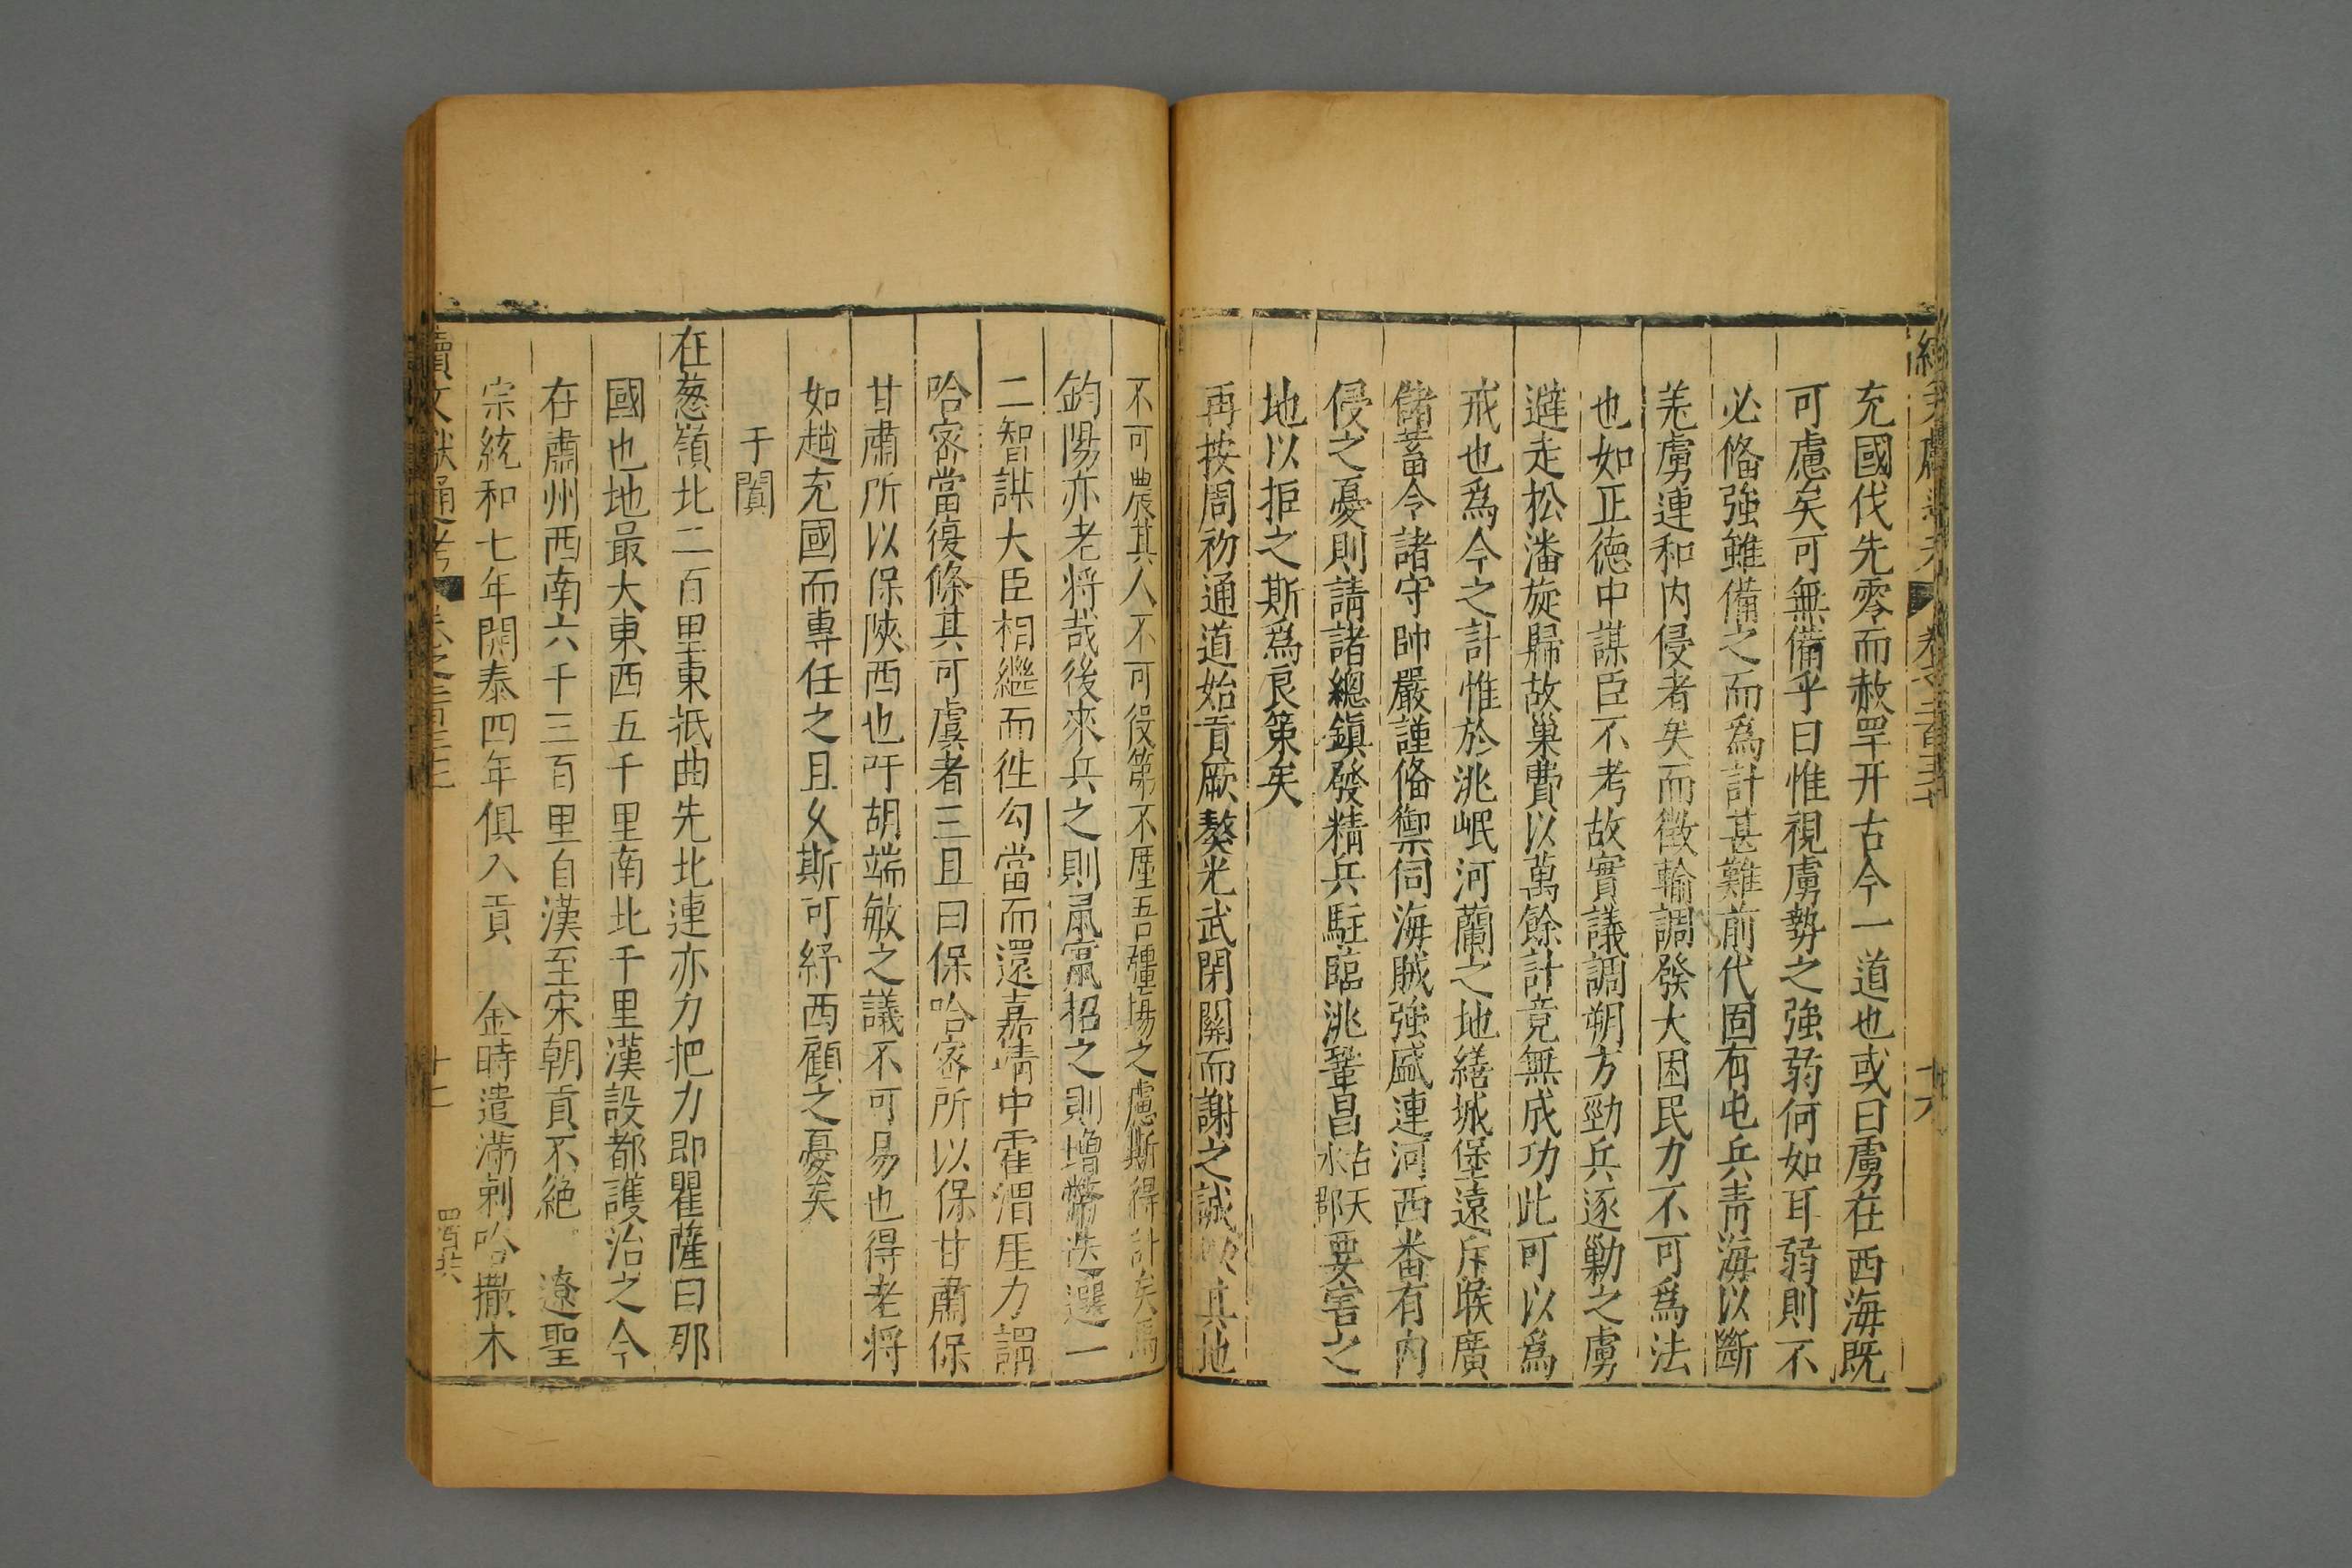 充國伐先零而赦䍐开古今一道也或曰虜在西海既
可慮矣可無備乎曰惟視虜勢之強弱何如耳弱則不
必俻強雖備之而為計甚難前代固有屯兵青海以斷
羌虜連和內侵者矣而徴輸調發大困民力不可爲法
也如正德中謀臣不考故實議調朔方勁兵逐勦之虜
遁走松潘旋歸故巢費以萬餘計竟無成功此可以爲
戒也爲今之計惟於洮岷河蘭之地繕城堡遠斥堠廣
儲蓄令諸守帥嚴謹俻禦伺海賊強盛連河西番有內
侵之憂則請諸總鎮發精兵駐臨洮鞏昌古天水郡要害之
地以拒之斯爲良策矣
再按周初通道始貢厥獒光武閉關而謝之誠以其地
不可農其人不可役第不厪吾疆埸之慮斯得計矣馬
鈞陽亦老將哉後來兵之則鼠竄招之則增幣迭選一
二智謀大臣相繼而徃勾當而還嘉靖中霍渭厓力謂
哈密當復條其可虞者三且曰保哈密所以保甘肅保
甘肅所以保陝西也吁胡端敏之議不可易也得老將
如趙充國而專任之且久斯可紓西顧之憂矣
于闐
在葱嶺北二百里東抵曲先北連亦力把力即瞿薩曰那
國也地最大東西五千里南北千里漢設都護治之今
在肅州西南六千三百里自漢至宋朝貢不絶 遼聖
宗統和七年開泰四年俱入貢 金時遣滿剌哈撒木
續文獻通考 卷之二百三十 十二 四百廿六